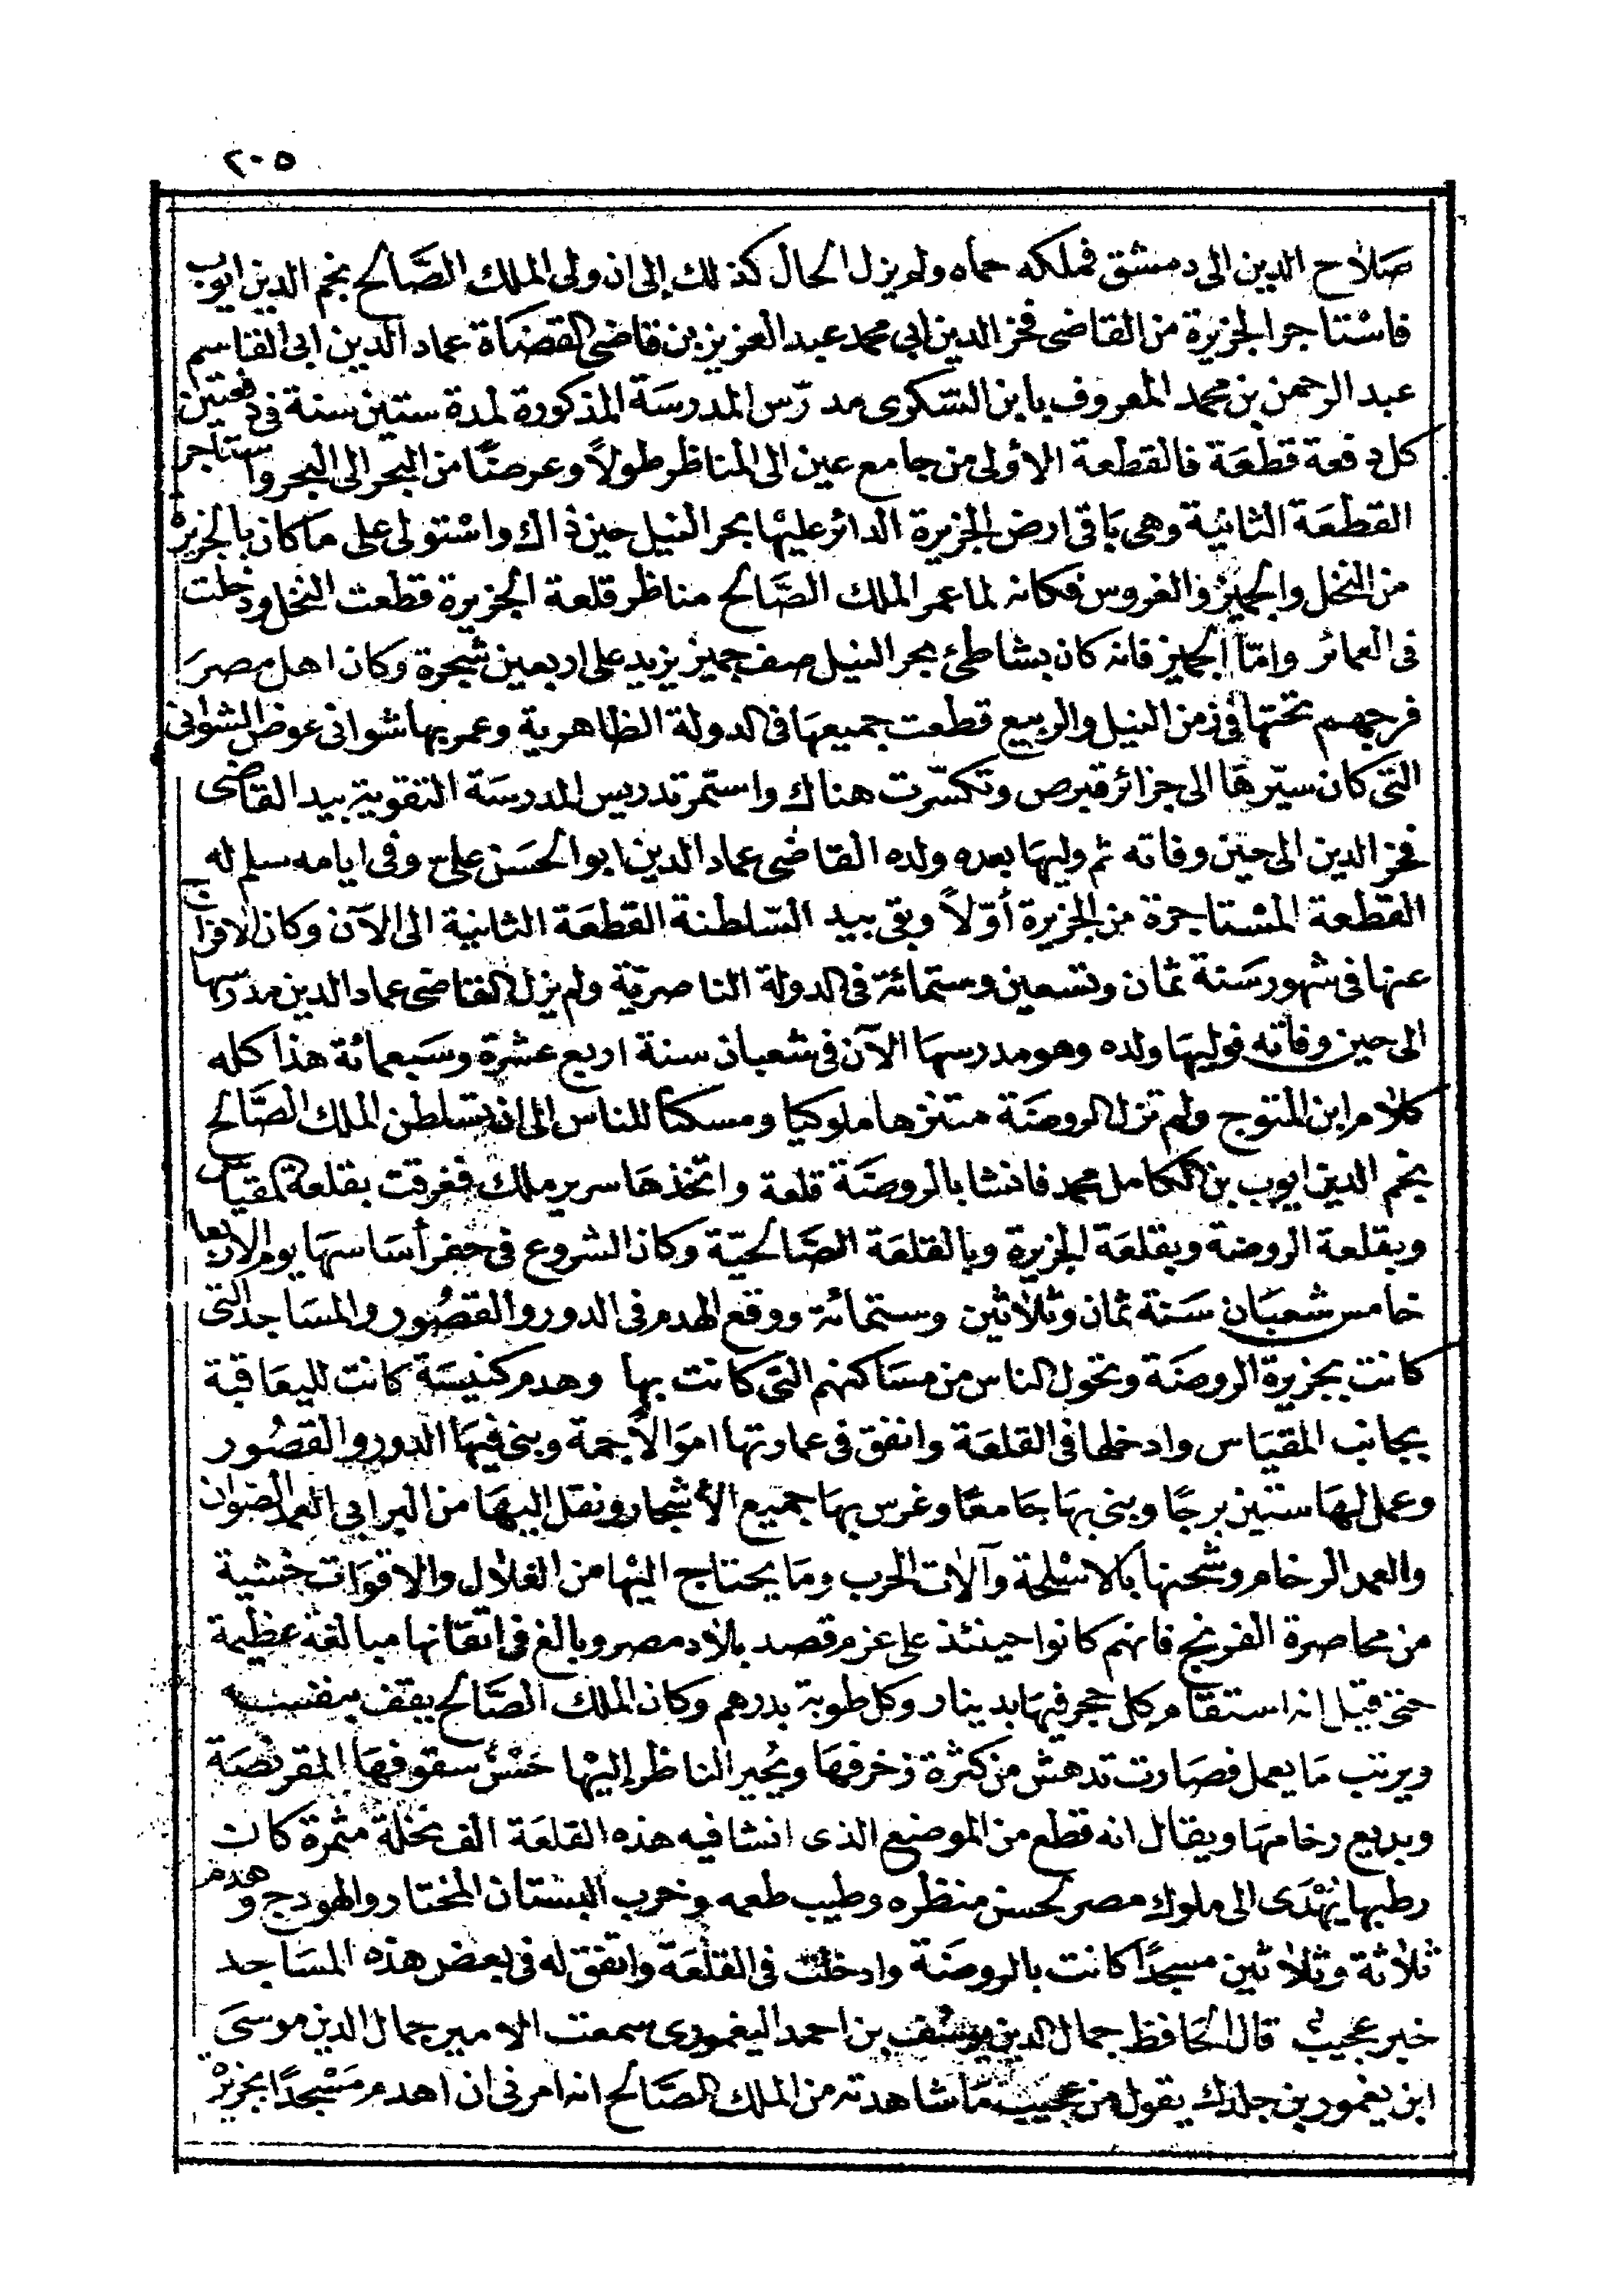 ٢٠٥
صَلاح الدين الى دمشق فملكه حماه ولم يزل الحال كذلك إلى ان ولى الملك الصَّالح نجم الدين ايوب
فاسْتاجر الجزيرة من القاضى فخز الدين ابي محمد عبد العزيز بن قاضى القضَاة عماد الدين ابى القاسم
عبد الرحمن بن محمد المعروف بابن السّكرى مدرّس المدرسَة المذكورة لمدة ستين سنة فى دفعتين
كل دفعة قطعَة فالقطعة الأولى من جامع عين الى المناظر طولاً وعرضًا من البحر الى البحر واستاجر
القطعَة الثانية وهى بَاقى ارض الجزيرة الدائر عليْها بحر النيل حين ذاك واسْتولى على مَا كان بالجزيرْ
من النخل والجميز والغروس فكانه لما عمر الملك الصَّالح مناظر قلعة الجزيرة قطعت النخل ودخلت
فى العمائر وامّا الجميز فانه كان بشاطئ بحر النيل صف جميز يزيد على اربعين شجرة وكان اهل مصرَ
فرجهم تحتها فى زمن النيل والربيع قطعت جميعهَا فى الدولة الظاهرية وعمر بها شوانى عوض الشوانى
التى كان سيّرهَا الى جزائر قبرص وتكسّرت هناك واستمر تدريس المدرسَة التقوية بيد القاضى
فخز الدين الى حين وفاته ثم وليهَا بعده ولده القاضى عماد الدين ابو الحسَن على وفى ايامه سلم له
القطعة المسْتاجرة من الجزيرة أوّلاً وبقى بيد السّلطنة القطعَة الثانية الى الآن وكان الافراج
عنها فى شهور سَنة ثمان وتسعين وستمائة فى الدولة الناصريّة ولم يزل القاضى عماد الدين مدرسها
الى حين وفاته فوليهَا ولده وهو مدرسهَا الآن فى شعبان سنة اربع عشرة وسَبعمائة هذا كله
كلام ابن المتوج ولم تزل الروضَة متنزها ملوكيا ومسكنا للناس الى ان تسَلطن الملك الصَّالح
نجم الدين ايوب بن الكامل محمد فانشا بالروضَة قلعة واتخذهَا سرير ملك فغرفت بقلعة المقياس
وبقلعة الروضة وبقلعَة الجزيرة وبالقلعَة الصَّالحيّة وكان الشروع فى حفر أسَاسهَا يوم الاربعا
خامس شعبَان سَنة ثمان وثلاثين وستمائة ووقع الهدم فى الدور والقصُور والمسَاجد التى
كانت بجزيرة الروضَة وتحول الناس من مسَاكنهم التى كانت بها وهدم كنيسَة كانت لليعَاقبة
بجانب المقيَاس وادخلها فى القلعَة وانفق فى عمارتها اموَالاً جمة وبنى فيهَا الدور والقصُور
وعمل لهَا ستين برجًا وبنى بهَا جَامعًا وغرس بهَا جميع الأشجار ونقل اليهَا من البرابي العمد الصوان
والعمد الرخام وشحنها بالاسْلحة وآلات الحرب ومَا يحتاج اليْها من الغلال والاقوَات خشية
من محاصرة الفرنج فانهم كانوا حينئذ على عزم قصد بلاد مصر وبالغ فى اتقانها مبالغة عظيمة
حتى قيل انه استقام كل حجر فيهَا بدينار وكل طوبة بدرهم وكان الملك الصَّالح يقف بنفسه
ويرتب مَا يعمل فصَارت تدهش من كثرة زخرفهَا ويُحير الناظر إليْها حسْنُ سقوفهَا المقرنصَة
وبديع رخامهَا ويقال انه قطع من الموضع الذى انشا فيه هذه القلعَة الف نخلة مثمرة كانت
رطبها يُهْدَى الى ملوك مصر لحسن منظره وطيب طعمه وخرب البسْتان المختار والهودج وهدم
ثلاثة وثلاثين مسجدًا كانت بالروضَة وادخلت فى القلعَة واتفق له فى بعض هذه المسَاجد
خبر عجيب قال الحافظ جمال الدين يوسُف بن احمد اليغمورى سمعت الامير جمال الدين موسىَ
ابن يغمور بن جلدك يقول من عجيب مَا شاهدته من الملك الصَّالح انه امرنى ان اهدم مَسْجدًا بجزيرْ